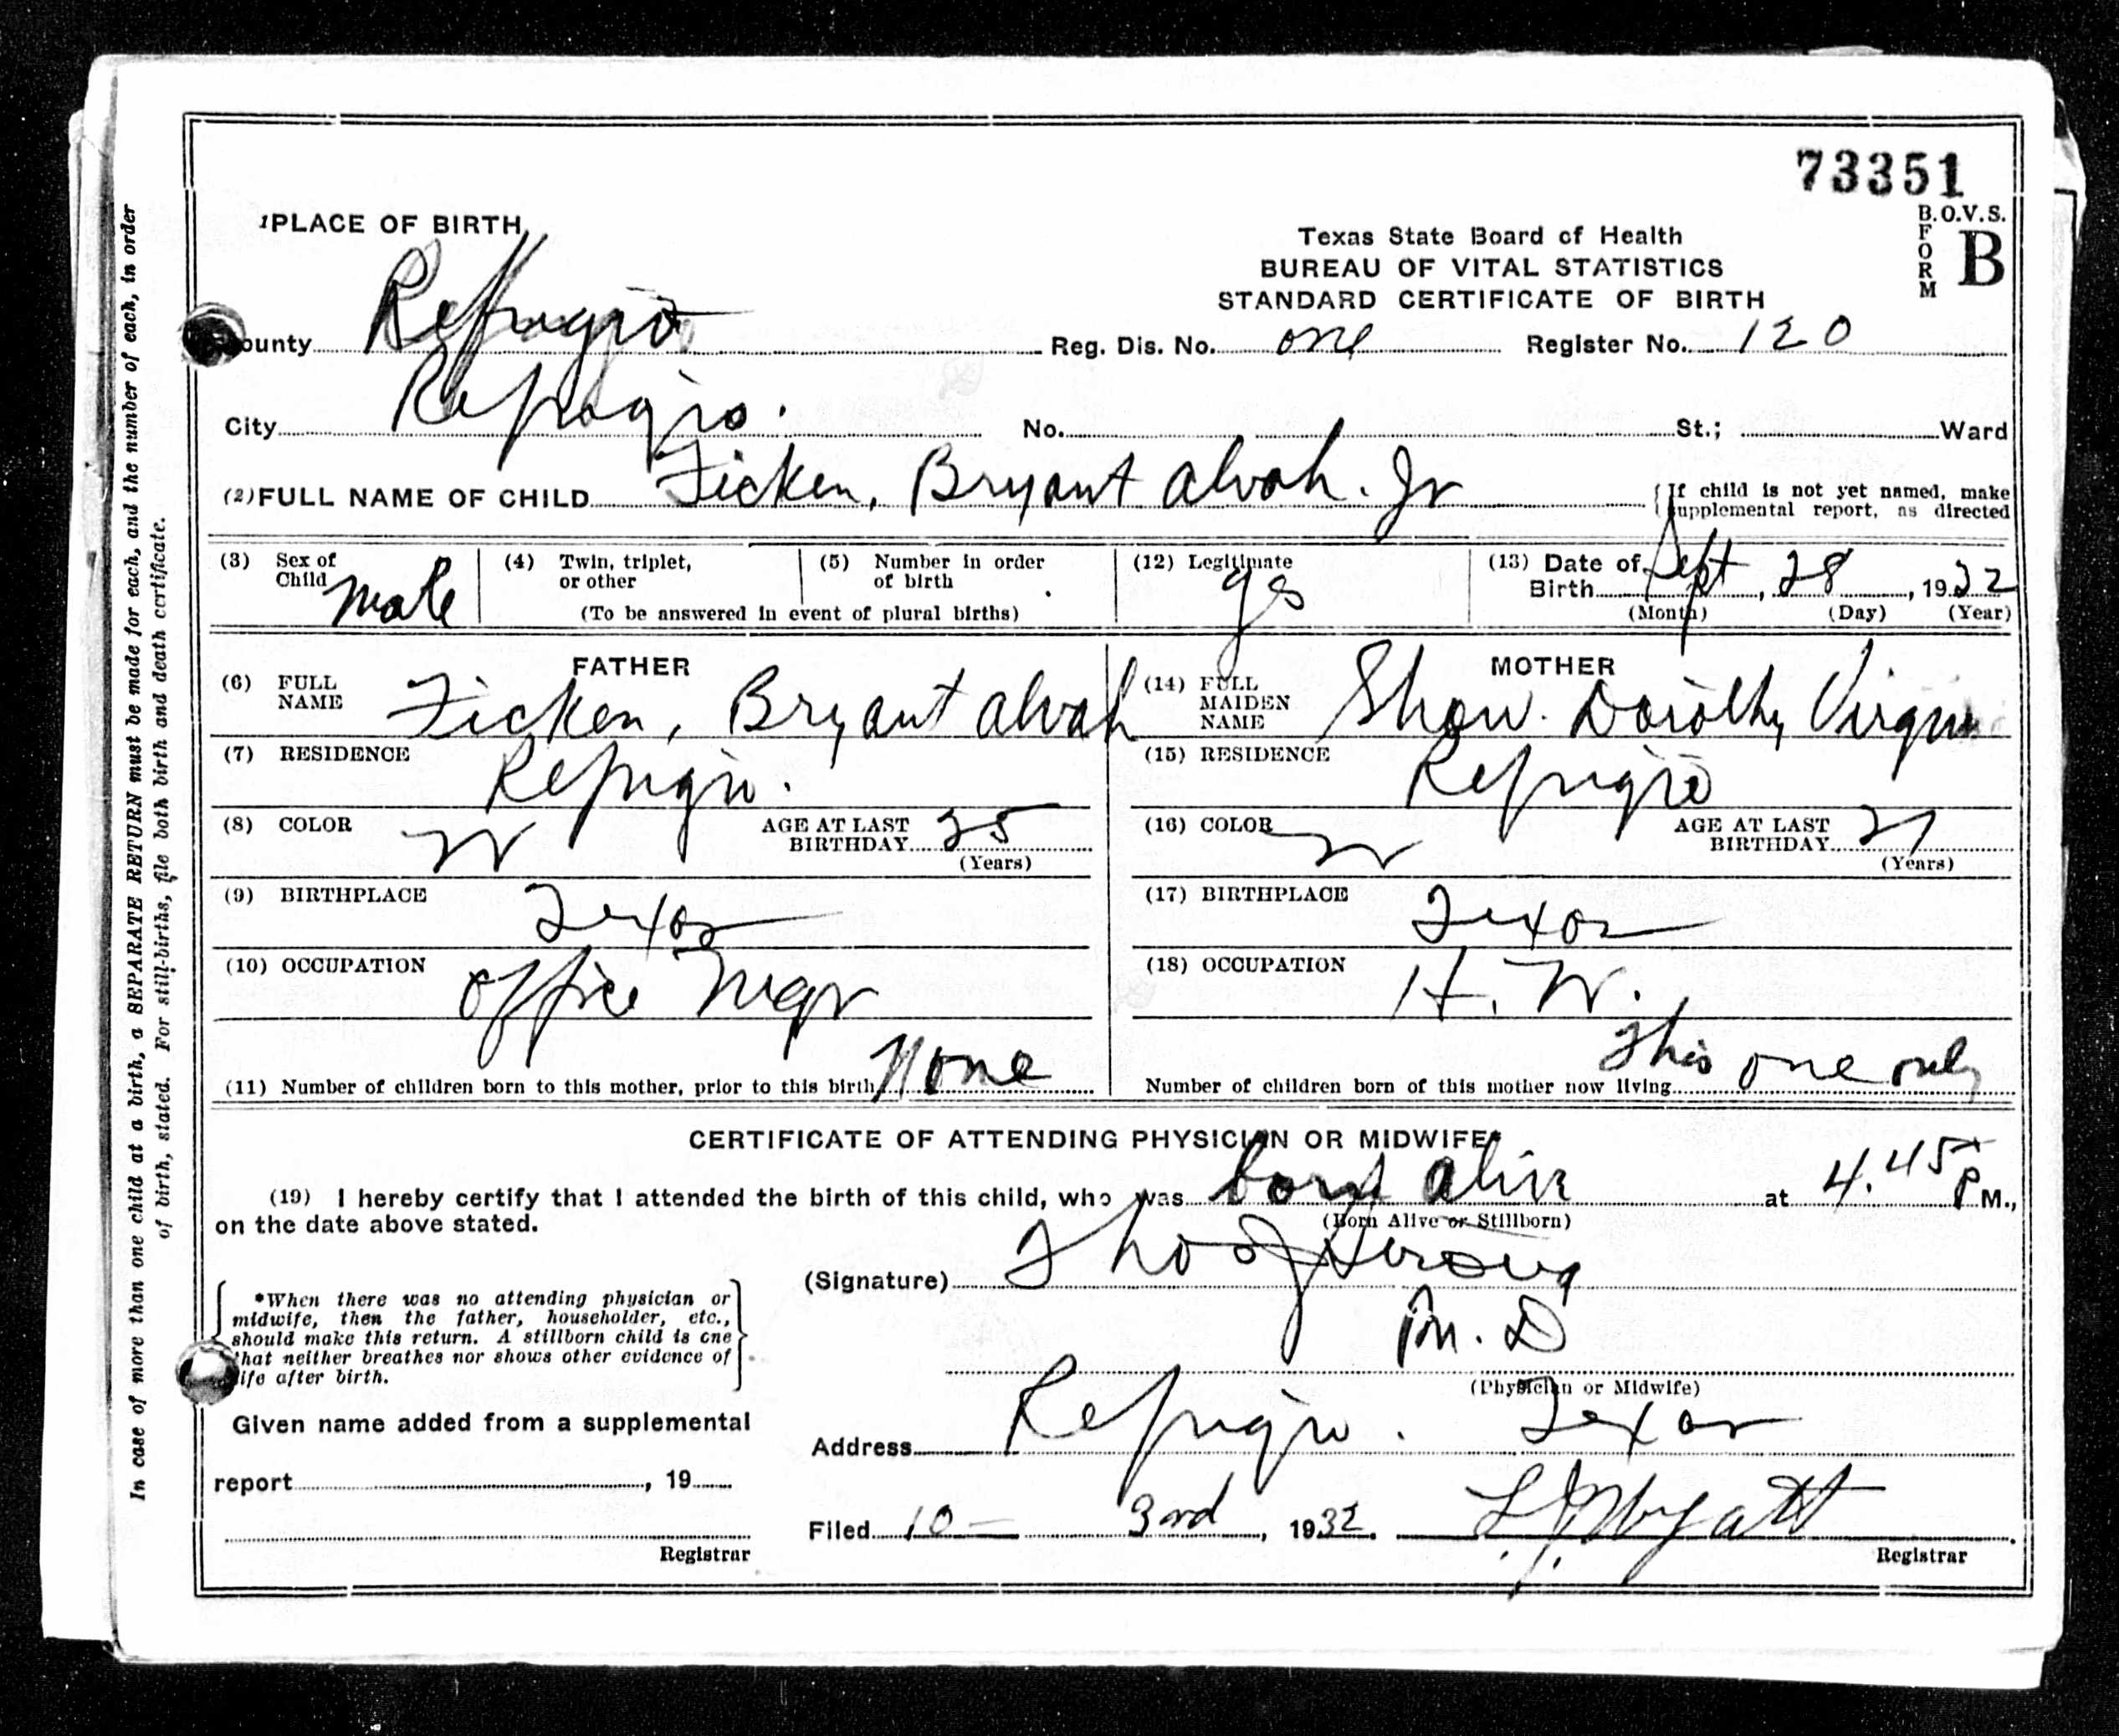 73351
B.O.V.S.
FORM B
1 PLACE OF BIRTH
Texas State Board of Health
BUREAU OF VITAL STATISTICS
STANDARD CERTIFICATE OF BIRTH
County Refugio Reg. Dis. No. one Register No. 120
City Refugio. No. St.; Ward
(2) FULL NAME OF CHILD Ficken, Bryant Alvah. Jr
{If child is not yet named, make
supplemental report, as directed
(3) Sex of Child male
(4) Twin, triplet, or other
(5) Number in order of birth
(To be answered in event of plural births)
(12) Legitimate yes
(13) Date of Birth Sept, 28, 1932
(Month) (Day) (Year)
FATHER
(6) FULL NAME Ficken, Bryant Alvah
(7) RESIDENCE Refugio.
(8) COLOR W AGE AT LAST BIRTHDAY 25
(Years)
(9) BIRTHPLACE Texas
(10) OCCUPATION Office Mgr
(11) Number of children born to this mother, prior to this birth None
MOTHER
(14) FULL MAIDEN NAME Shaw. Dorothy
(15) RESIDENCE Refugio
(16) COLOR W AGE AT LAST BIRTHDAY 21
(Years)
(17) BIRTHPLACE Texas
(18) OCCUPATION H. W.
Number of children born of this mother now living This one only
CERTIFICATE OF ATTENDING PHYSICIAN OR MIDWIFE*
(19) I hereby certify that I attended the birth of this child, who was born alive at 4.45 P M.,
(Born Alive or Stillborn)
on the date above stated.
(Signature) Thos
M. D
(Physician or Midwife)
*When there was no attending physician or
midwife, then the father, householder, etc.,
should make this return. A stillborn child is one
that neither breathes nor shows other evidence of
life after birth.
Given name added from a supplemental
report , 19
Registrar
Address Refugio. Texas
Filed 10 - 3rd, 1932.
Registrar
In case of more than one child at a birth, a SEPARATE RETURN must be made for each, and the number of each, in order
of birth, stated. For still-births, file both birth and death certificate.